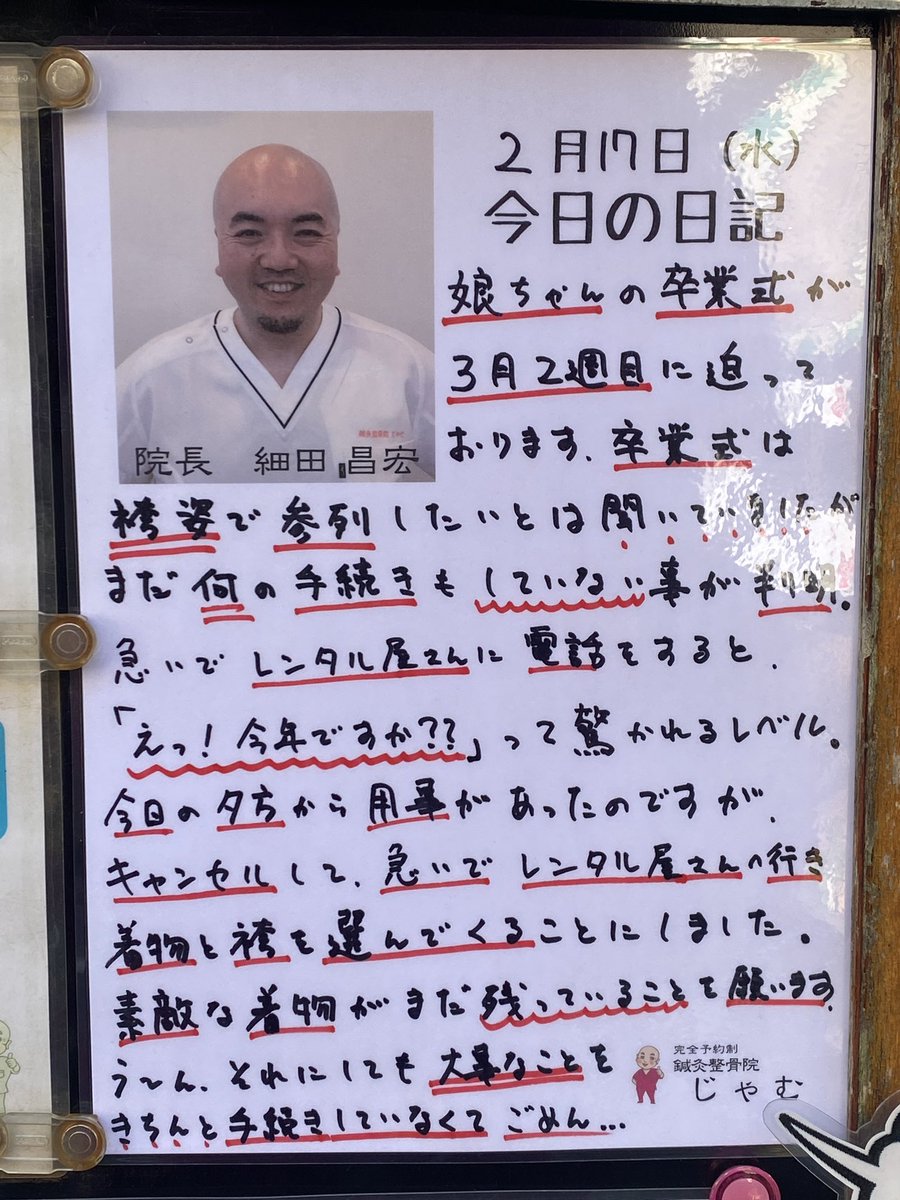 2月17日(水)
今日の日記
娘ちゃんの卒業式が
3月2週目に迫って
おります。卒業式は
院長 細田 昌宏
袴姿で参列したいとは聞いていましたが
まだ何の手続きもしていない事が判明。
急いでレンタル屋さんに電話をすると、
「えっ!今年ですか??」って驚かれるレベル。
今日の夕方から用事があったのですが、
キャンセルして、急いでレンタル屋さんへ行き
着物と袴を選んでくることにしました。
素敵な着物がまだ残っていることを願います。
う〜ん、それにしても大事なことを
きちんと手続きしていなくてごめん...
完全予約制
鍼灸整骨院
じゃむ